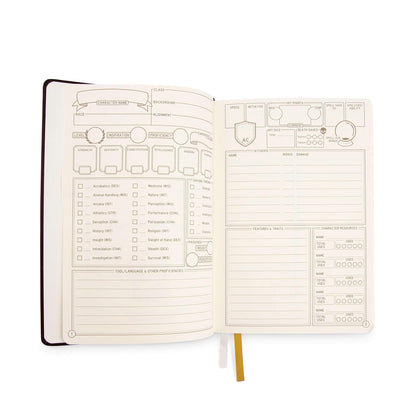 CLASS
CHARACTER NAME
BACKGROUND
RACE
ALIGNMENT
LEVEL
INSPIRATION
PROFICIENCY
STRENGTH
DEXTERITY
CONSTITUTION
INTELLIGENCE
WISDOM
Acrobatics (DEX)
Medicine (WIS)
Animal Handling (WIS)
Nature (INT)
Arcana (INT)
Perception (WIS)
Athletics (STR)
Performance (CHA)
Deception (CHA)
Persuasion (CHA)
History (INT)
Religion (INT)
Insight (WIS)
Sleight of Hand (DEX)
Intimidation (CHA)
Stealth (DEX)
Investigation (INT)
Survival (WIS)
TOOL, LANGUAGE & OTHER PROFICIENCIES
SPEED
INITIATIVE
HIT POINTS
AC
HIT DICE
DEATH SAVES
NAME
BONUS
DAMAGE
FEATURES & TRAITS
CHARACTER RESOURCES
NAME
TOTAL USES
USED
NAME
TOTAL USES
USED
NAME
TOTAL USES
USED
NAME
TOTAL USES
USED
NAME
TOTAL USES
USED